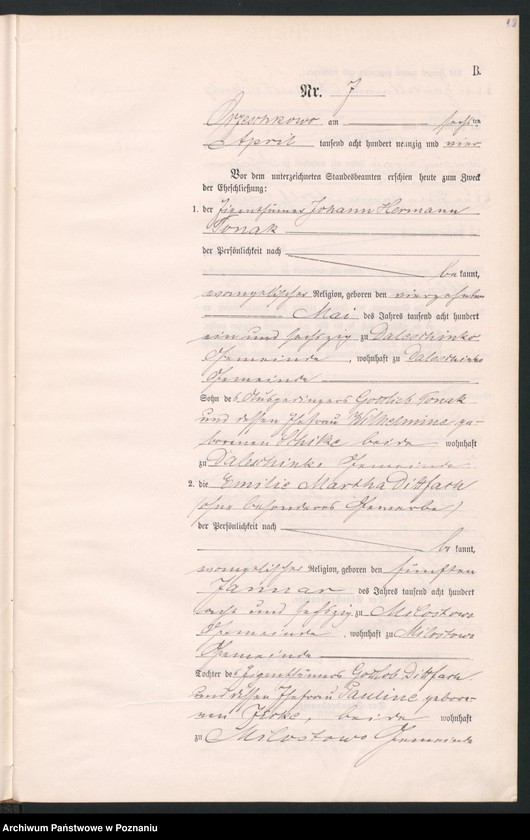 18
B.
Nr. 7
Orzeschkowo am sechsten
April tausend acht hundert neunzig und vier
Vor dem unterzeichneten Standesbeamten erschien heute zum Zweck
der Eheschließung:
1. der Eigenthümer Johann Hermann
Tonak
der Persönlichkeit nach
be kannt,
evangelischer Religion, geboren den vierzehnten
Mai des Jahres tausend acht hundert
ein und sechszig zu Daleschinko
Gemeinde, wohnhaft zu Daleschinko
Gemeinde
Sohn des Gottlieb Tonak
und dessen Ehefrau Wilhelmine ge-
borenen beide wohnhaft
zu Daleschinko Gemeinde
2. die Emilie Martha Dittfach
(ohne besonderes Gewerbe)
der Persönlichkeit nach
be kannt,
evangelischer Religion, geboren den fünften
Januar des Jahres tausend acht hundert
acht und sechszig zu Milostowo
Gemeinde, wohnhaft zu Milostowo
Gemeinde
Tochter des Eigenthümers Gottlob Dittfach
und dessen Ehefrau Pauline gebore-
nen beide wohnhaft
zu Milostowo Gemeinde
Archiwum Państwowe w Poznaniu